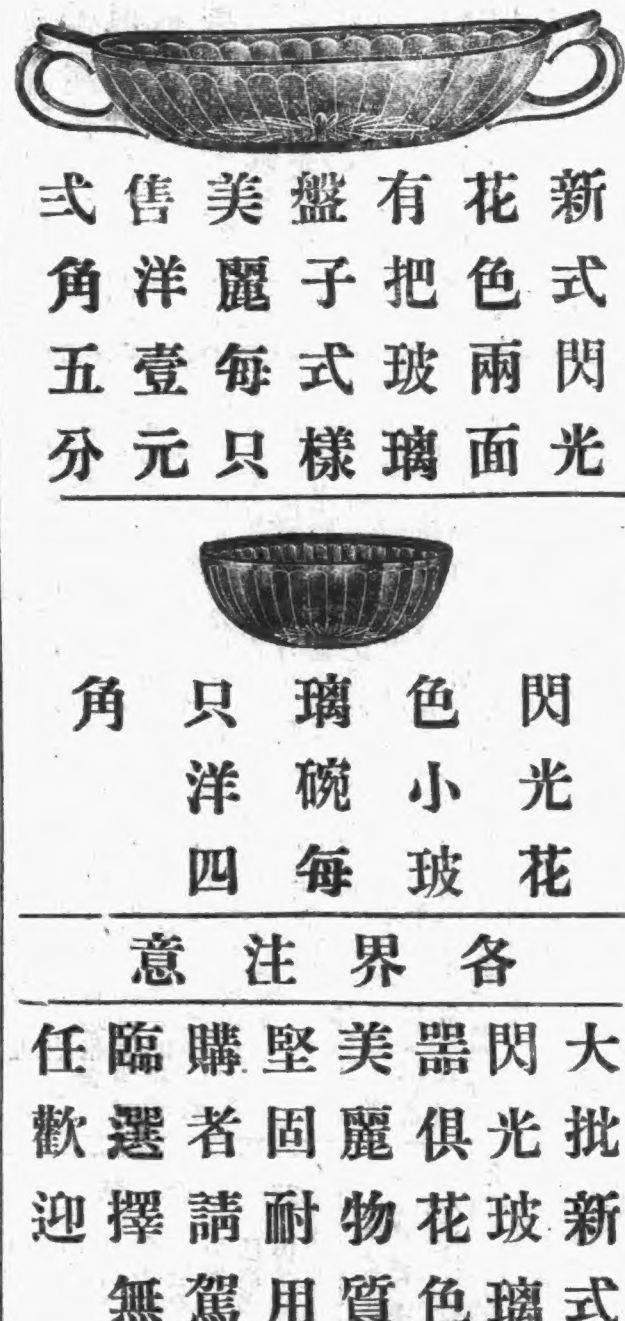 新式閃光
花色兩面
有把玻璃
盤子式樣
美麗每只
售洋壹元
弍角五分
閃光花
色小玻
璃碗每
只洋四
角
各界注意
大批新式
閃光玻璃
器俱花色
美麗物質
堅固耐用
購者請駕
臨選擇無
任歡迎